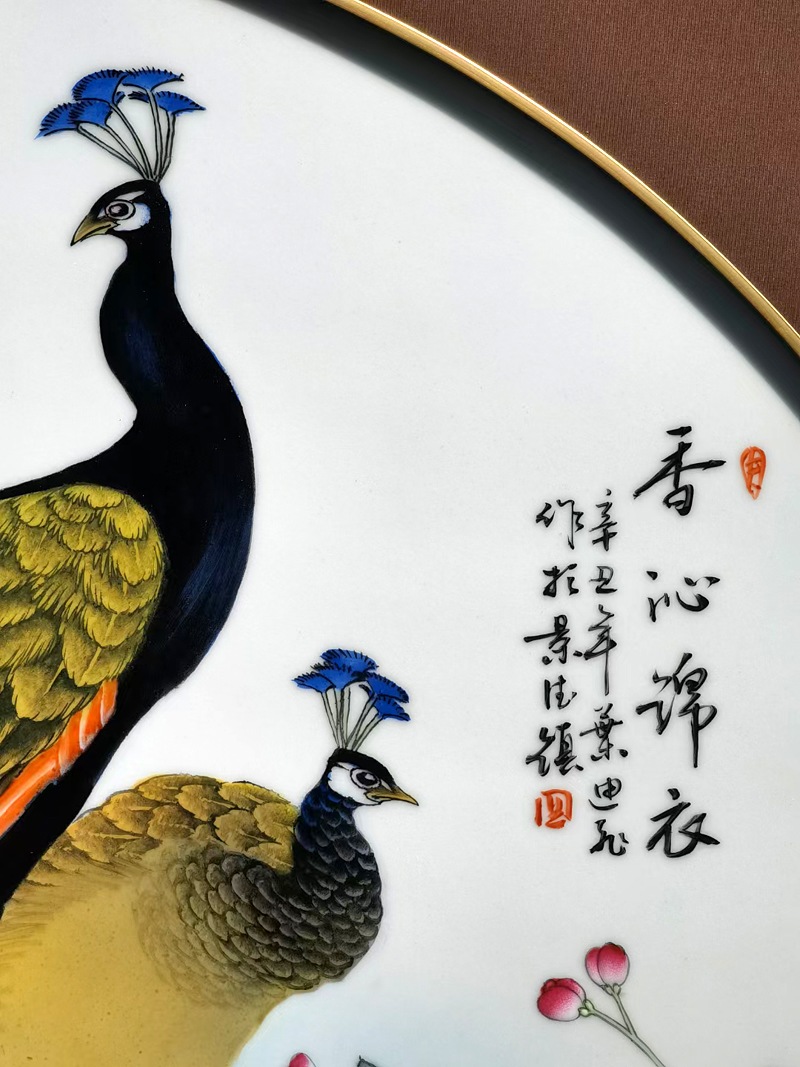 香沁锦衣
辛丑年葉迪飛
作於景德镇